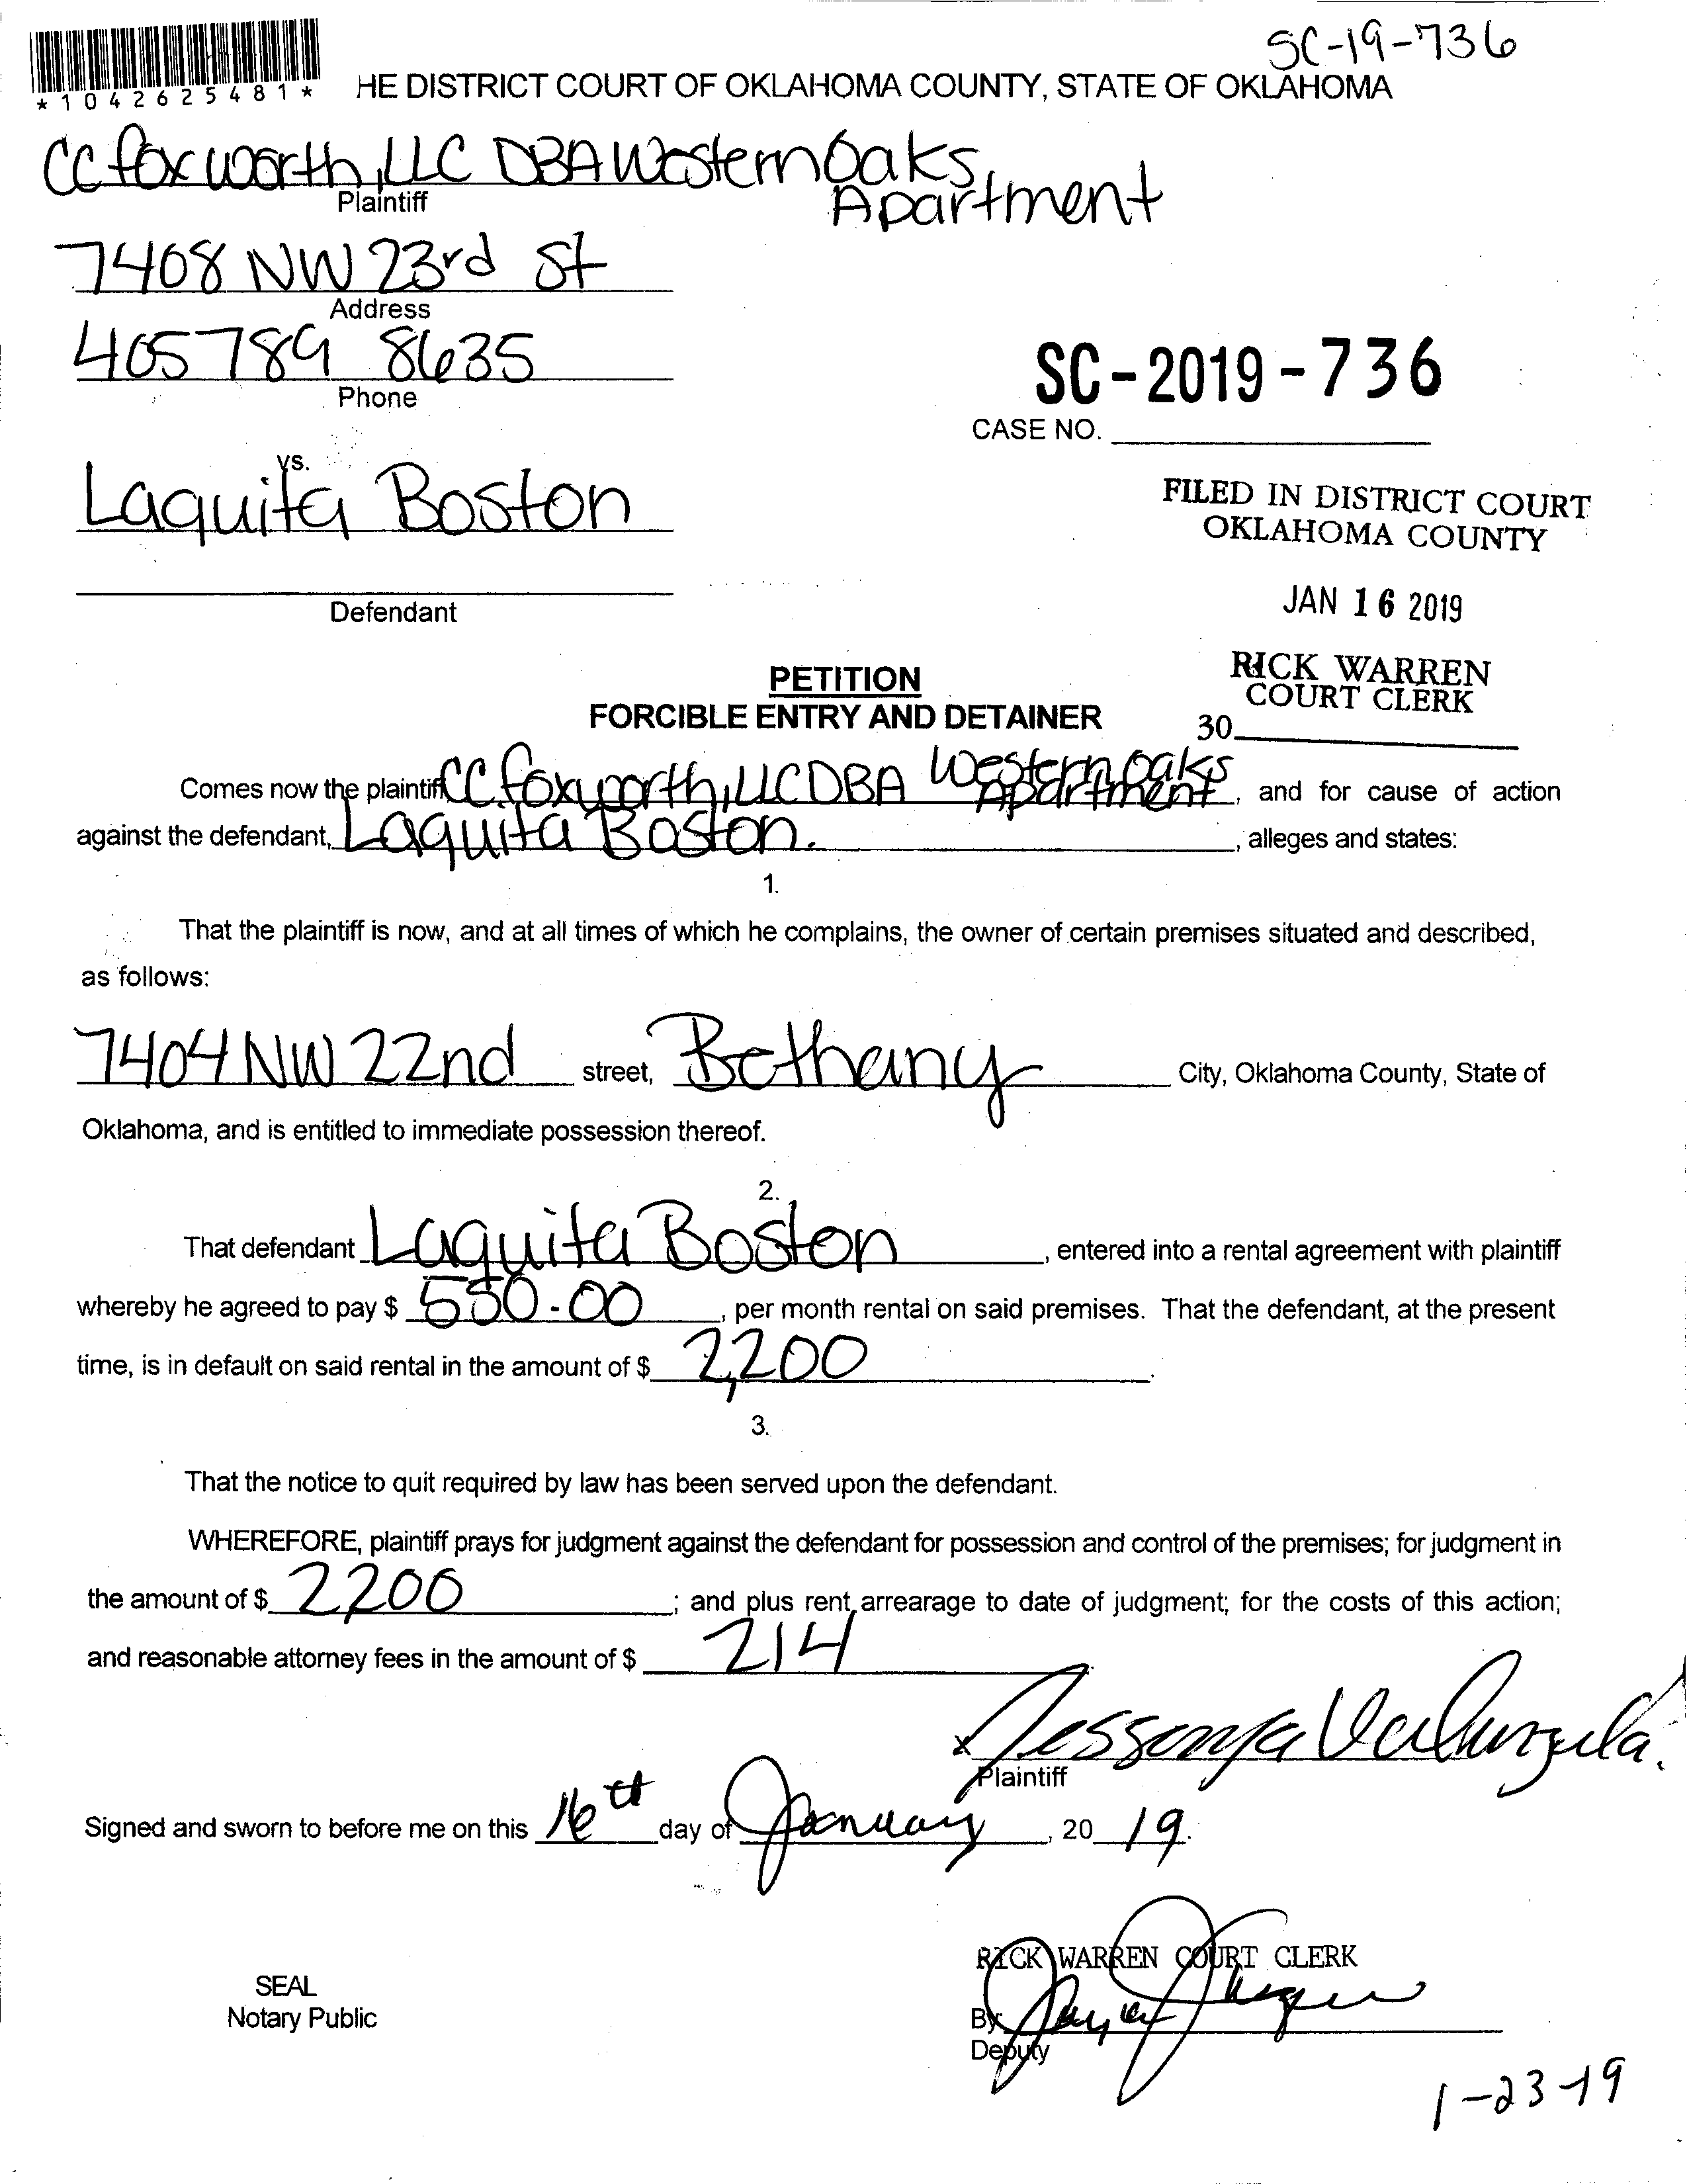 SC-19-736
*1042625481*
HE DISTRICT COURT OF OKLAHOMA COUNTY, STATE OF OKLAHOMA
CC foxworth, LLC DBA Western Oaks
Apartment
Plaintiff
7408 NW 23rd St
Address
405 789 8635
Phone
SC-2019-736
CASE NO.
vs.
Laquita Boston
FILED IN DISTRICT COURT
OKLAHOMA COUNTY
Defendant
JAN 16 2019
RICK WARREN
COURT CLERK
30
PETITION
FORCIBLE ENTRY AND DETAINER
Comes now the plaintiff CC foxworth, LLC DBA Western Oaks Apartment, and for cause of action
against the defendant, Laquita Boston. , alleges and states:
1.
That the plaintiff is now, and at all times of which he complains, the owner of certain premises situated and described,
as follows:
7404 NW 22nd street, Bethany City, Oklahoma County, State of
Oklahoma, and is entitled to immediate possession thereof.
2.
That defendant Laquita Boston, entered into a rental agreement with plaintiff
whereby he agreed to pay $ 550.00, per month rental on said premises. That the defendant, at the present
time, is in default on said rental in the amount of $ 2,200.
3.
That the notice to quit required by law has been served upon the defendant.
WHEREFORE, plaintiff prays for judgment against the defendant for possession and control of the premises; for judgment in
the amount of $ 2,200; and plus rent arrearage to date of judgment; for the costs of this action;
and reasonable attorney fees in the amount of $ 214
x
Plaintiff
Signed and sworn to before me on this 16th day of January, 20 19.
RICK WARREN COURT CLERK
SEAL
Notary Public
By
Deputy
1-23-19